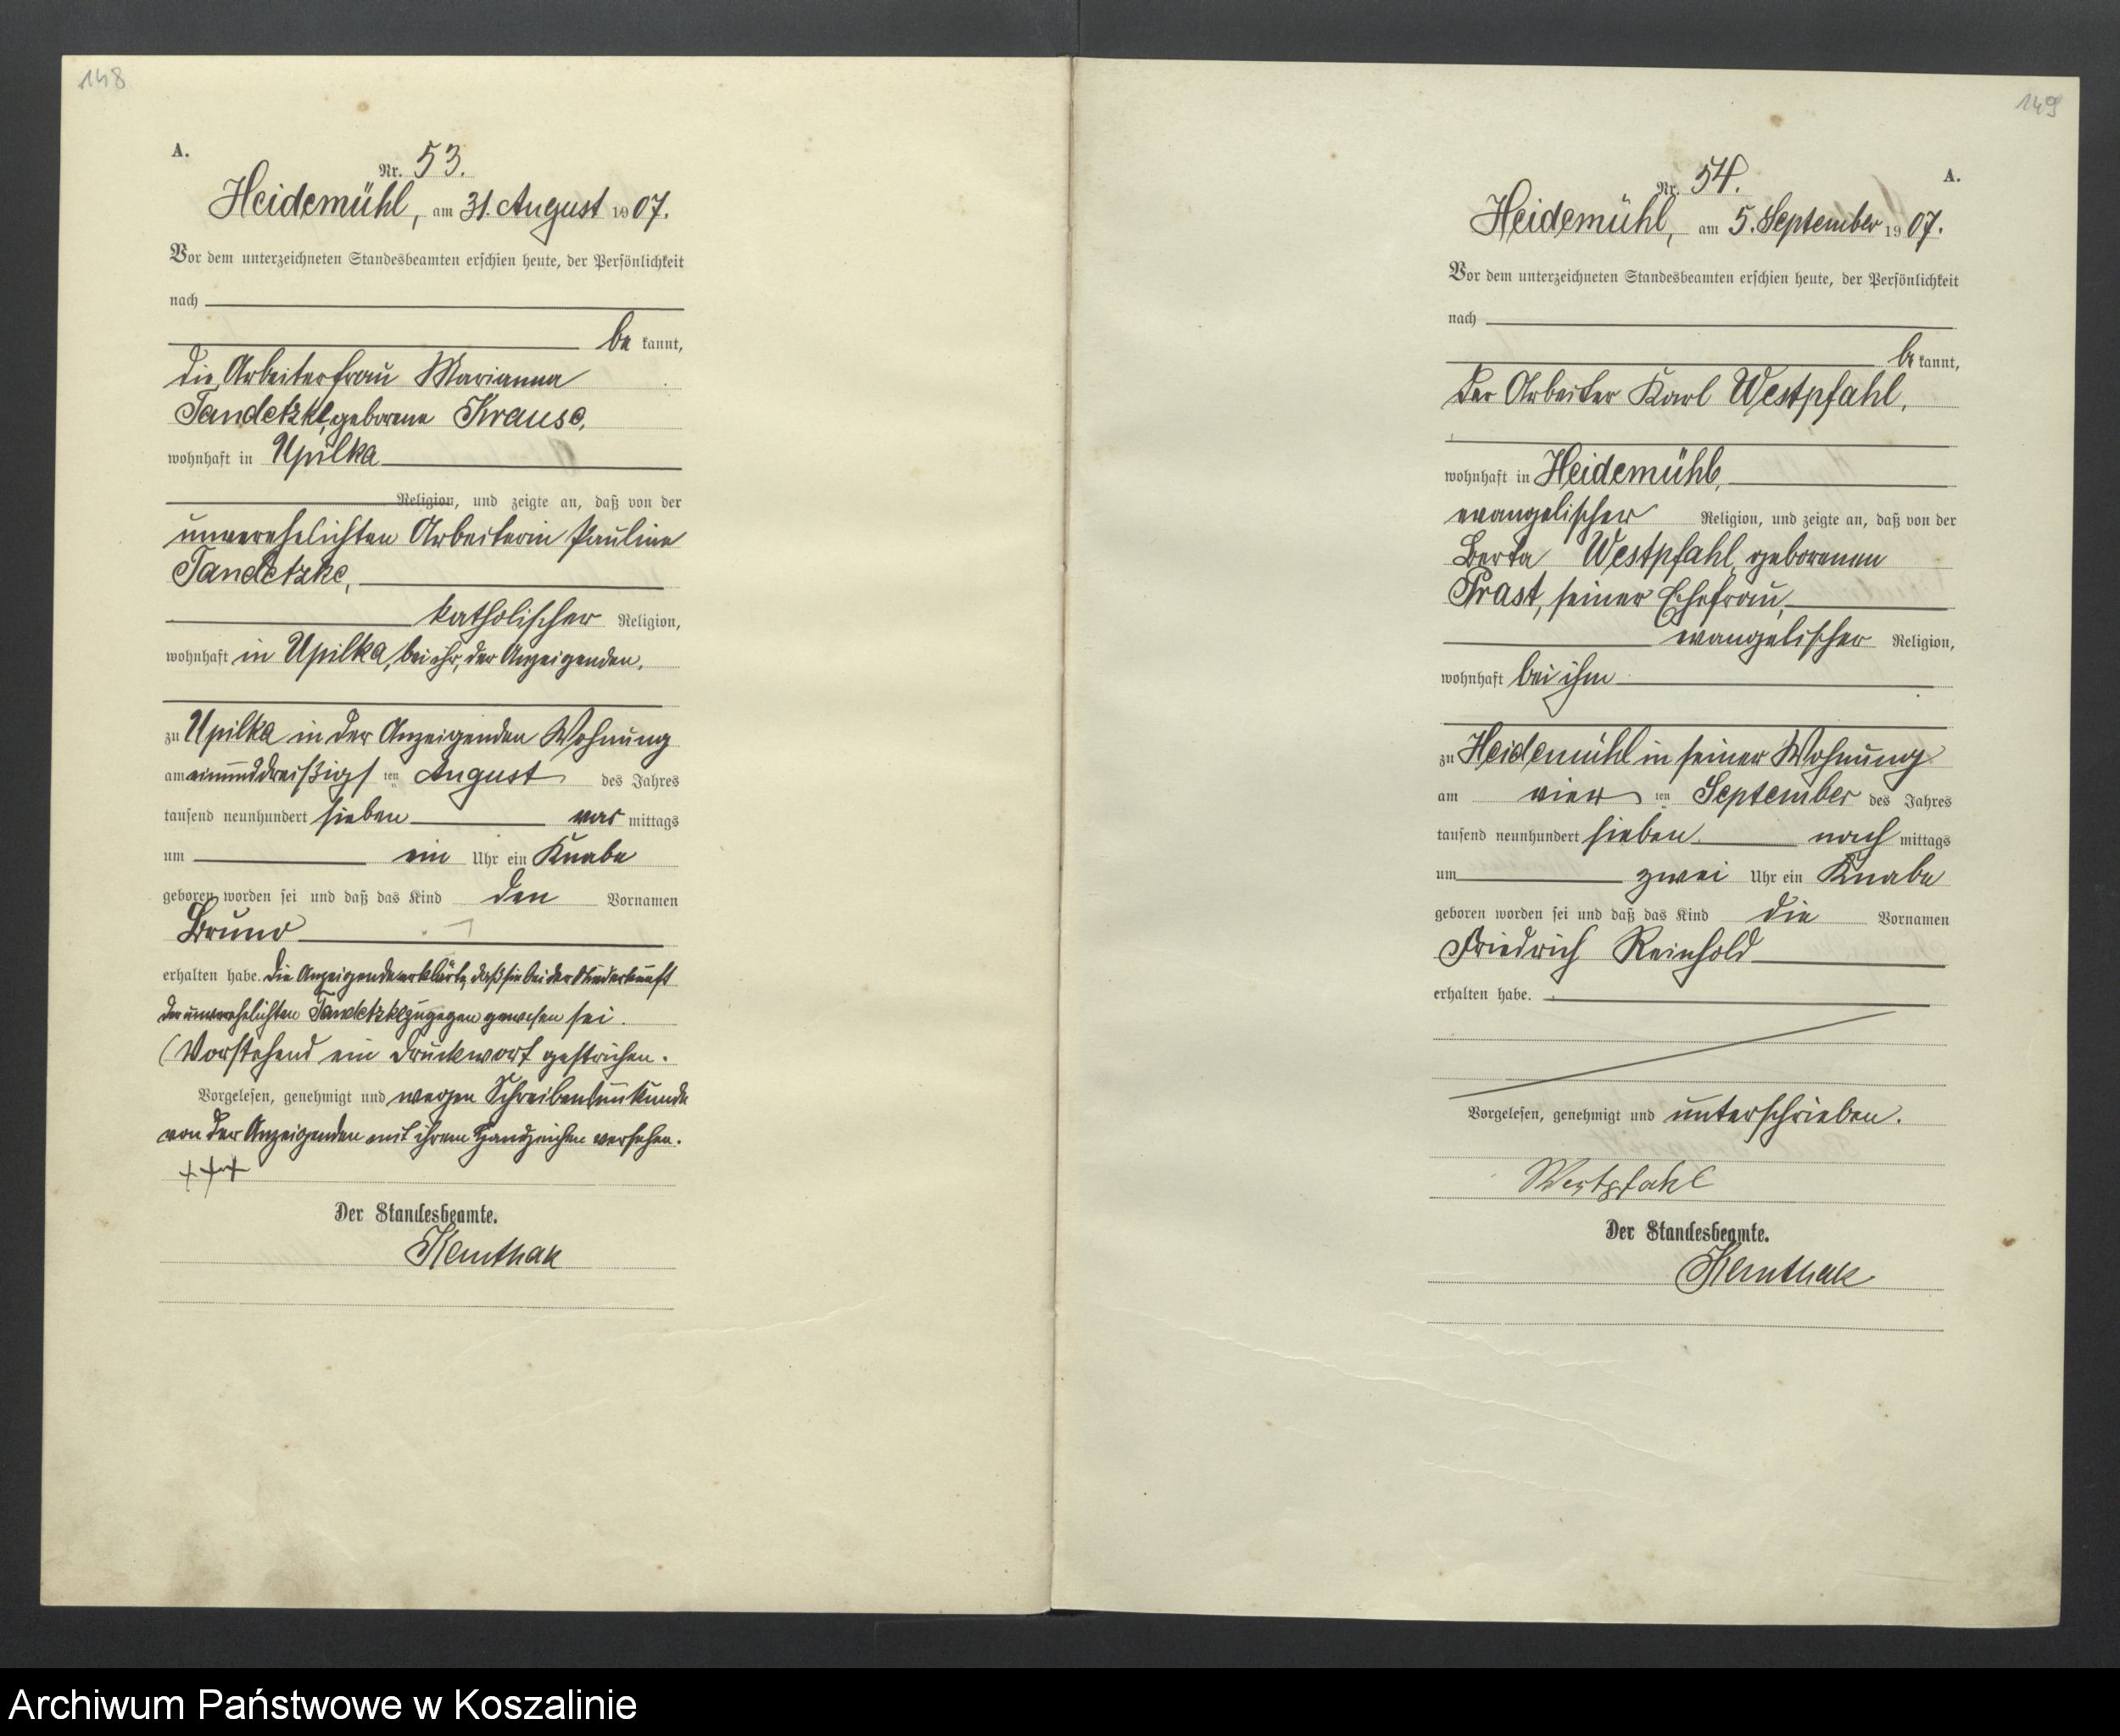 148
A.
Nr. 53.
Heidemühl, am 31. August 1907.
Vor dem unterzeichneten Standesbeamten erschien heute, der Persönlichkeit
nach
be kannt,
die Arbeiterfrau Marianna
Tandetzke, geborene Krause,
wohnhaft in Upilka
Religion, und zeigte an, daß von der
unverehelichten Arbeiterin Pauline
Tandetzke,
katholischer Religion,
wohnhaft in Upilka, bei ihr, der Anzeigenden,
zu Upilka in der Anzeigenden Wohnung
am einunddreißigsten August des Jahres
tausend neunhundert sieben vor mittags
um ein Uhr ein Knabe
geboren worden sei und daß das Kind den Vornamen
Bruno
erhalten habe. Die Anzeigende erklärte, daß sie bei der Niederkunft
der unverehelichten Tandetzke zugegen gewesen sei.
(Vorstehend ein Druckwort gestrichen.
Vorgelesen, genehmigt und wegen Schreibensunkunde
von der Anzeigenden mit ihrem Handzeichen versehen.
+++
Der Standesbeamte.
149
A.
Nr. 54.
Heidemühl, am 5. September 1907.
Vor dem unterzeichneten Standesbeamten erschien heute, der Persönlichkeit
nach
be kannt,
der Arbeiter Karl Westpfahl,
wohnhaft in Heidemühl,
evangelischer Religion, und zeigte an, daß von der
Berta Westpfahl, geborenen
Prast, seiner Ehefrau,
evangelischer Religion,
wohnhaft bei ihm
zu Heidemühl in seiner Wohnung
am vierten September des Jahres
tausend neunhundert sieben nach mittags
um zwei Uhr ein Knabe
geboren worden sei und daß das Kind die Vornamen
Friedrich Reinhold
erhalten habe.
Vorgelesen, genehmigt und unterschrieben.
Westpfahl
Der Standesbeamte.
Archiwum Państwowe w Koszalinie